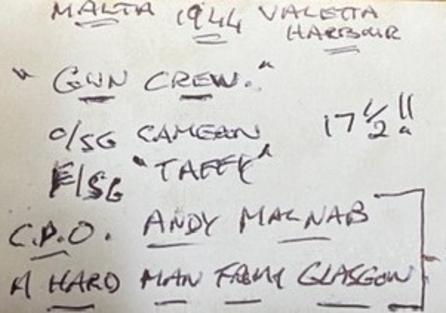 MALTA 1944 VALETTA
HARBOUR
"GUN CREW."
O/SG CAMERAN 17 1/2"
F/SG "TAFFY"
C.P.O. ANDY MACNAB
A HARD MAN FROM GLASGOW